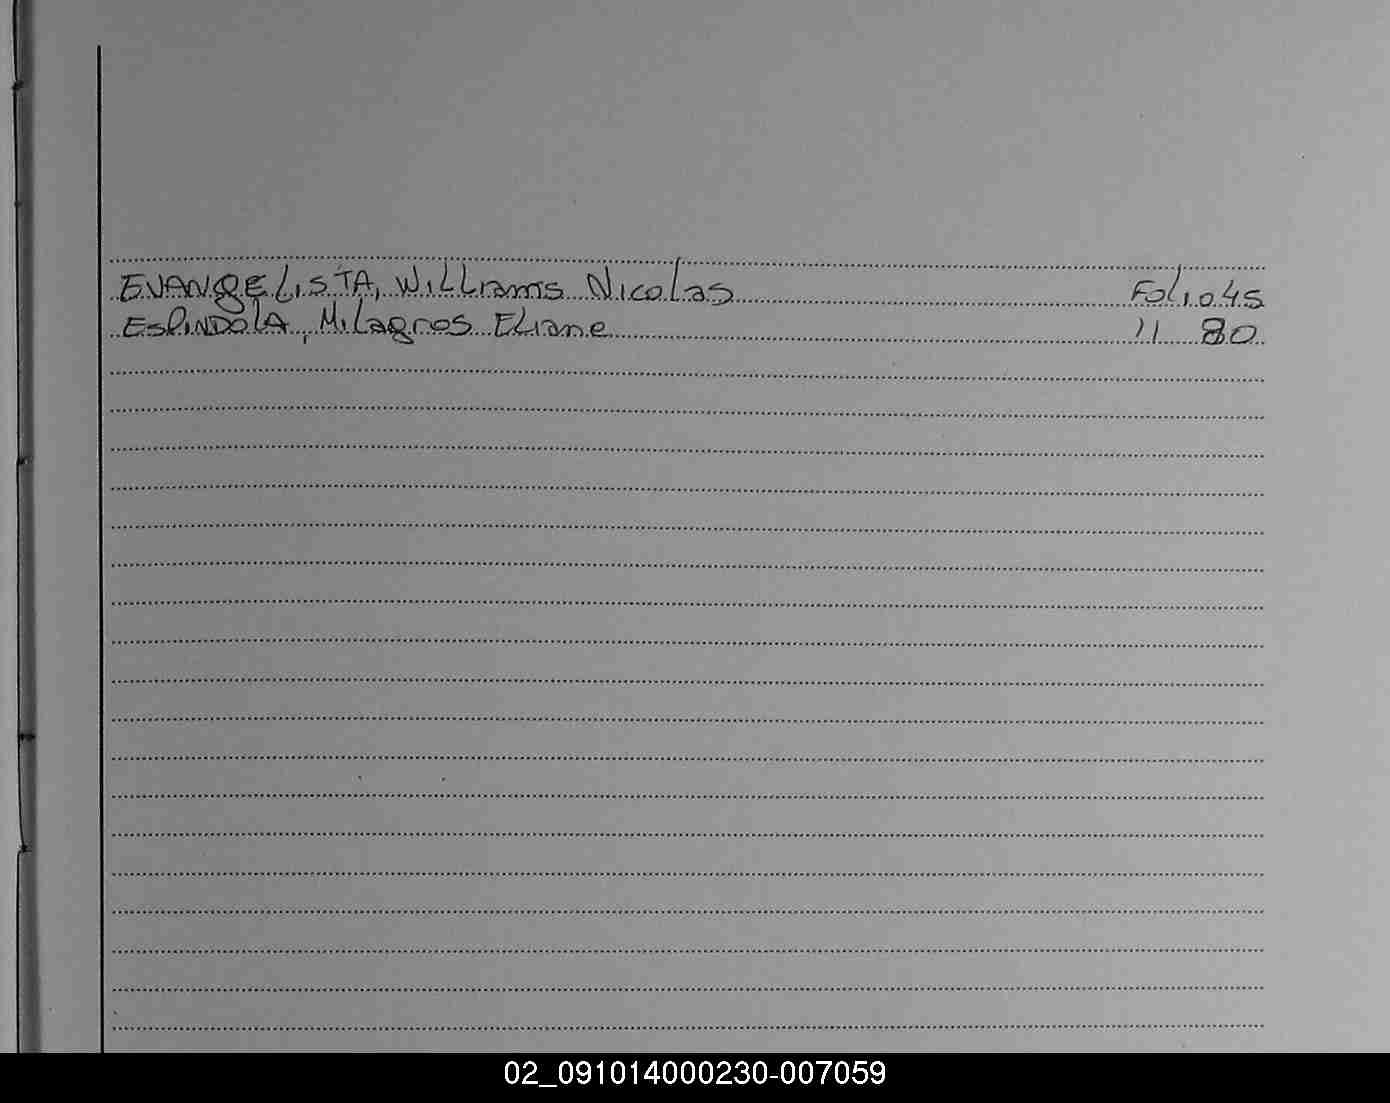 EVANGELISTA, Williams Nicolas Folio 45
EsPINDOlA, Milagros Eliane 11 80
02_091014000230-007059